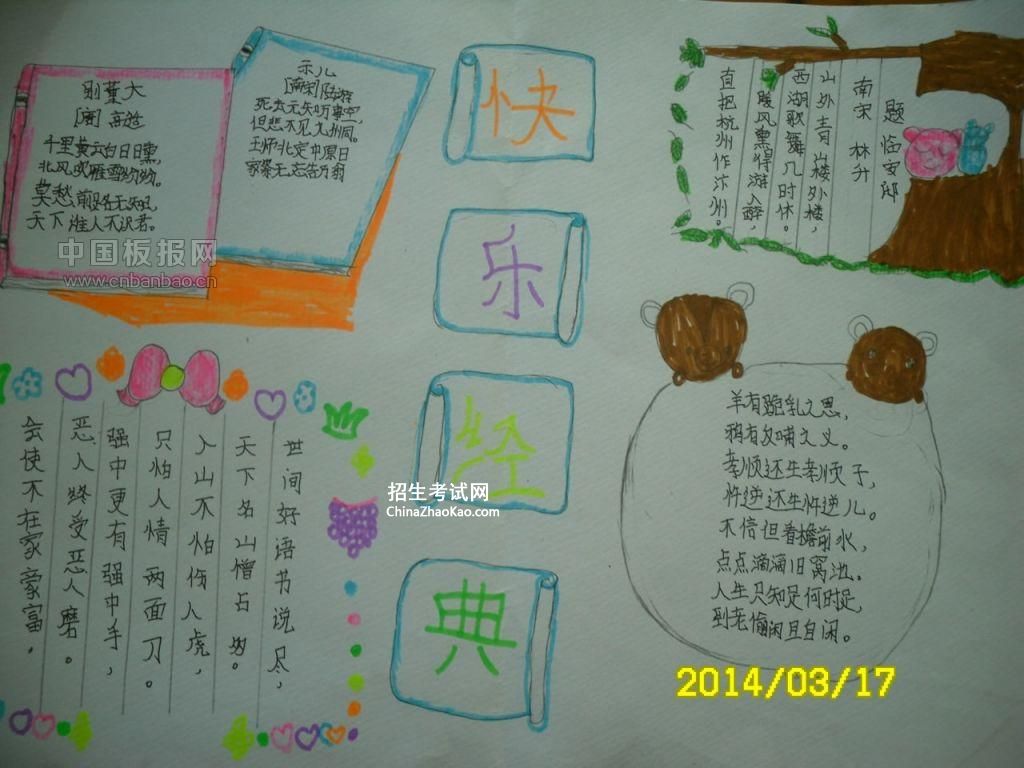 别董大
[唐] 高适
千里黄云白日曛,
北风吹雁雪纷纷。
莫愁前路无知己,
天下谁人不识君。
示儿
[南宋] 陆游
死去元知万事空,
但悲不见九州同。
王师北定中原日
家祭无忘告乃翁
快
乐
经
典
题临安邸
南宋 林升
山外青山楼外楼,
西湖歌舞几时休。
暖风熏得游人醉,
直把杭州作汴州。
世间好语书说尽,
天下名山僧占多。
入山不怕伤人虎,
只怕人情两面刀。
强中更有强中手,
恶人终受恶人磨。
会使不在家豪富,
羊有跪乳之恩,
鸦有反哺之义。
孝顺还生孝顺子,
忤逆还生忤逆儿。
不信但看檐前水,
点点滴滴旧窝池。
人生只知足何时足,
到老偷闲且自闲。
中国板报网
www.cnbanbao.cn
招生考试网
ChinaZhaoKao.com
2014/03/17